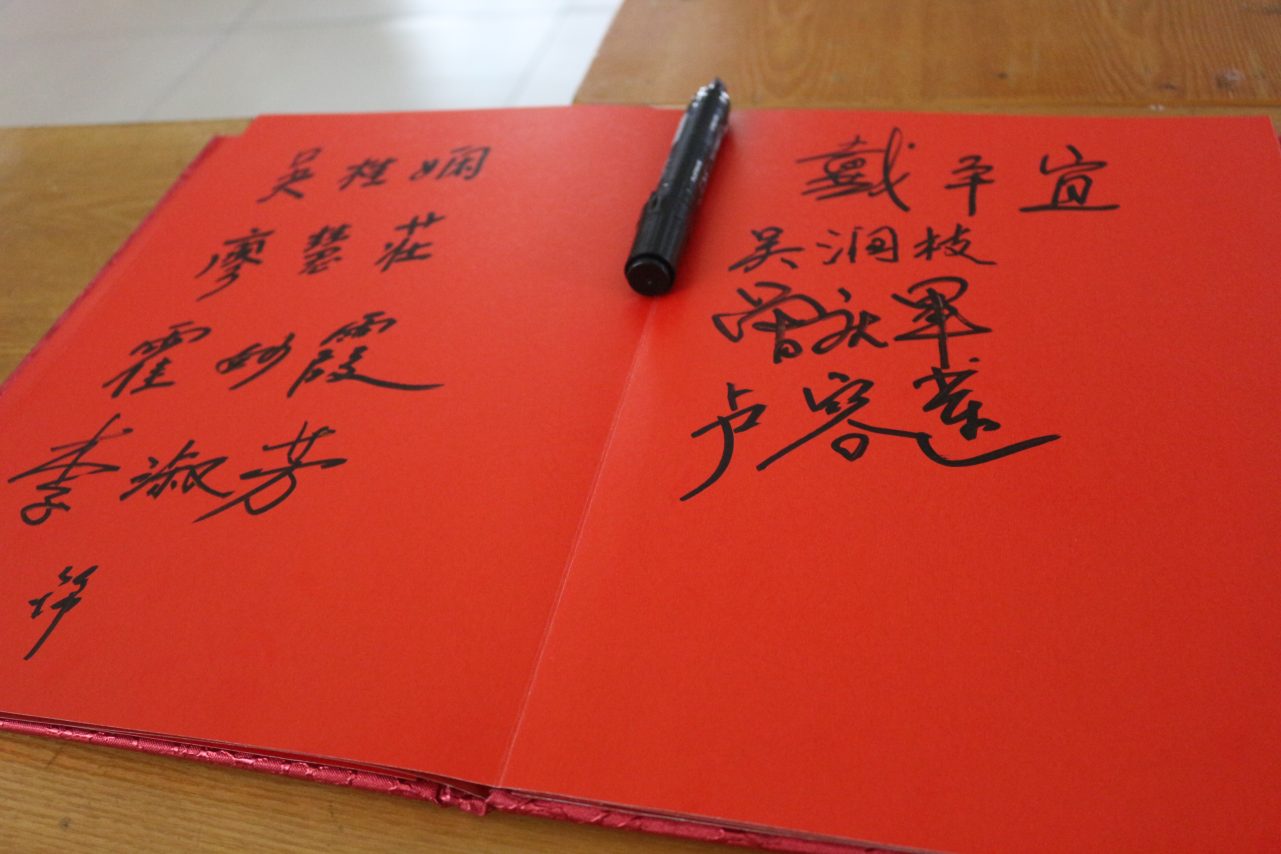 吴桂娴
廖慧莊
霍妙霞
李淑芳
戴平宜
吴润枝
曾庆军
卢容莲